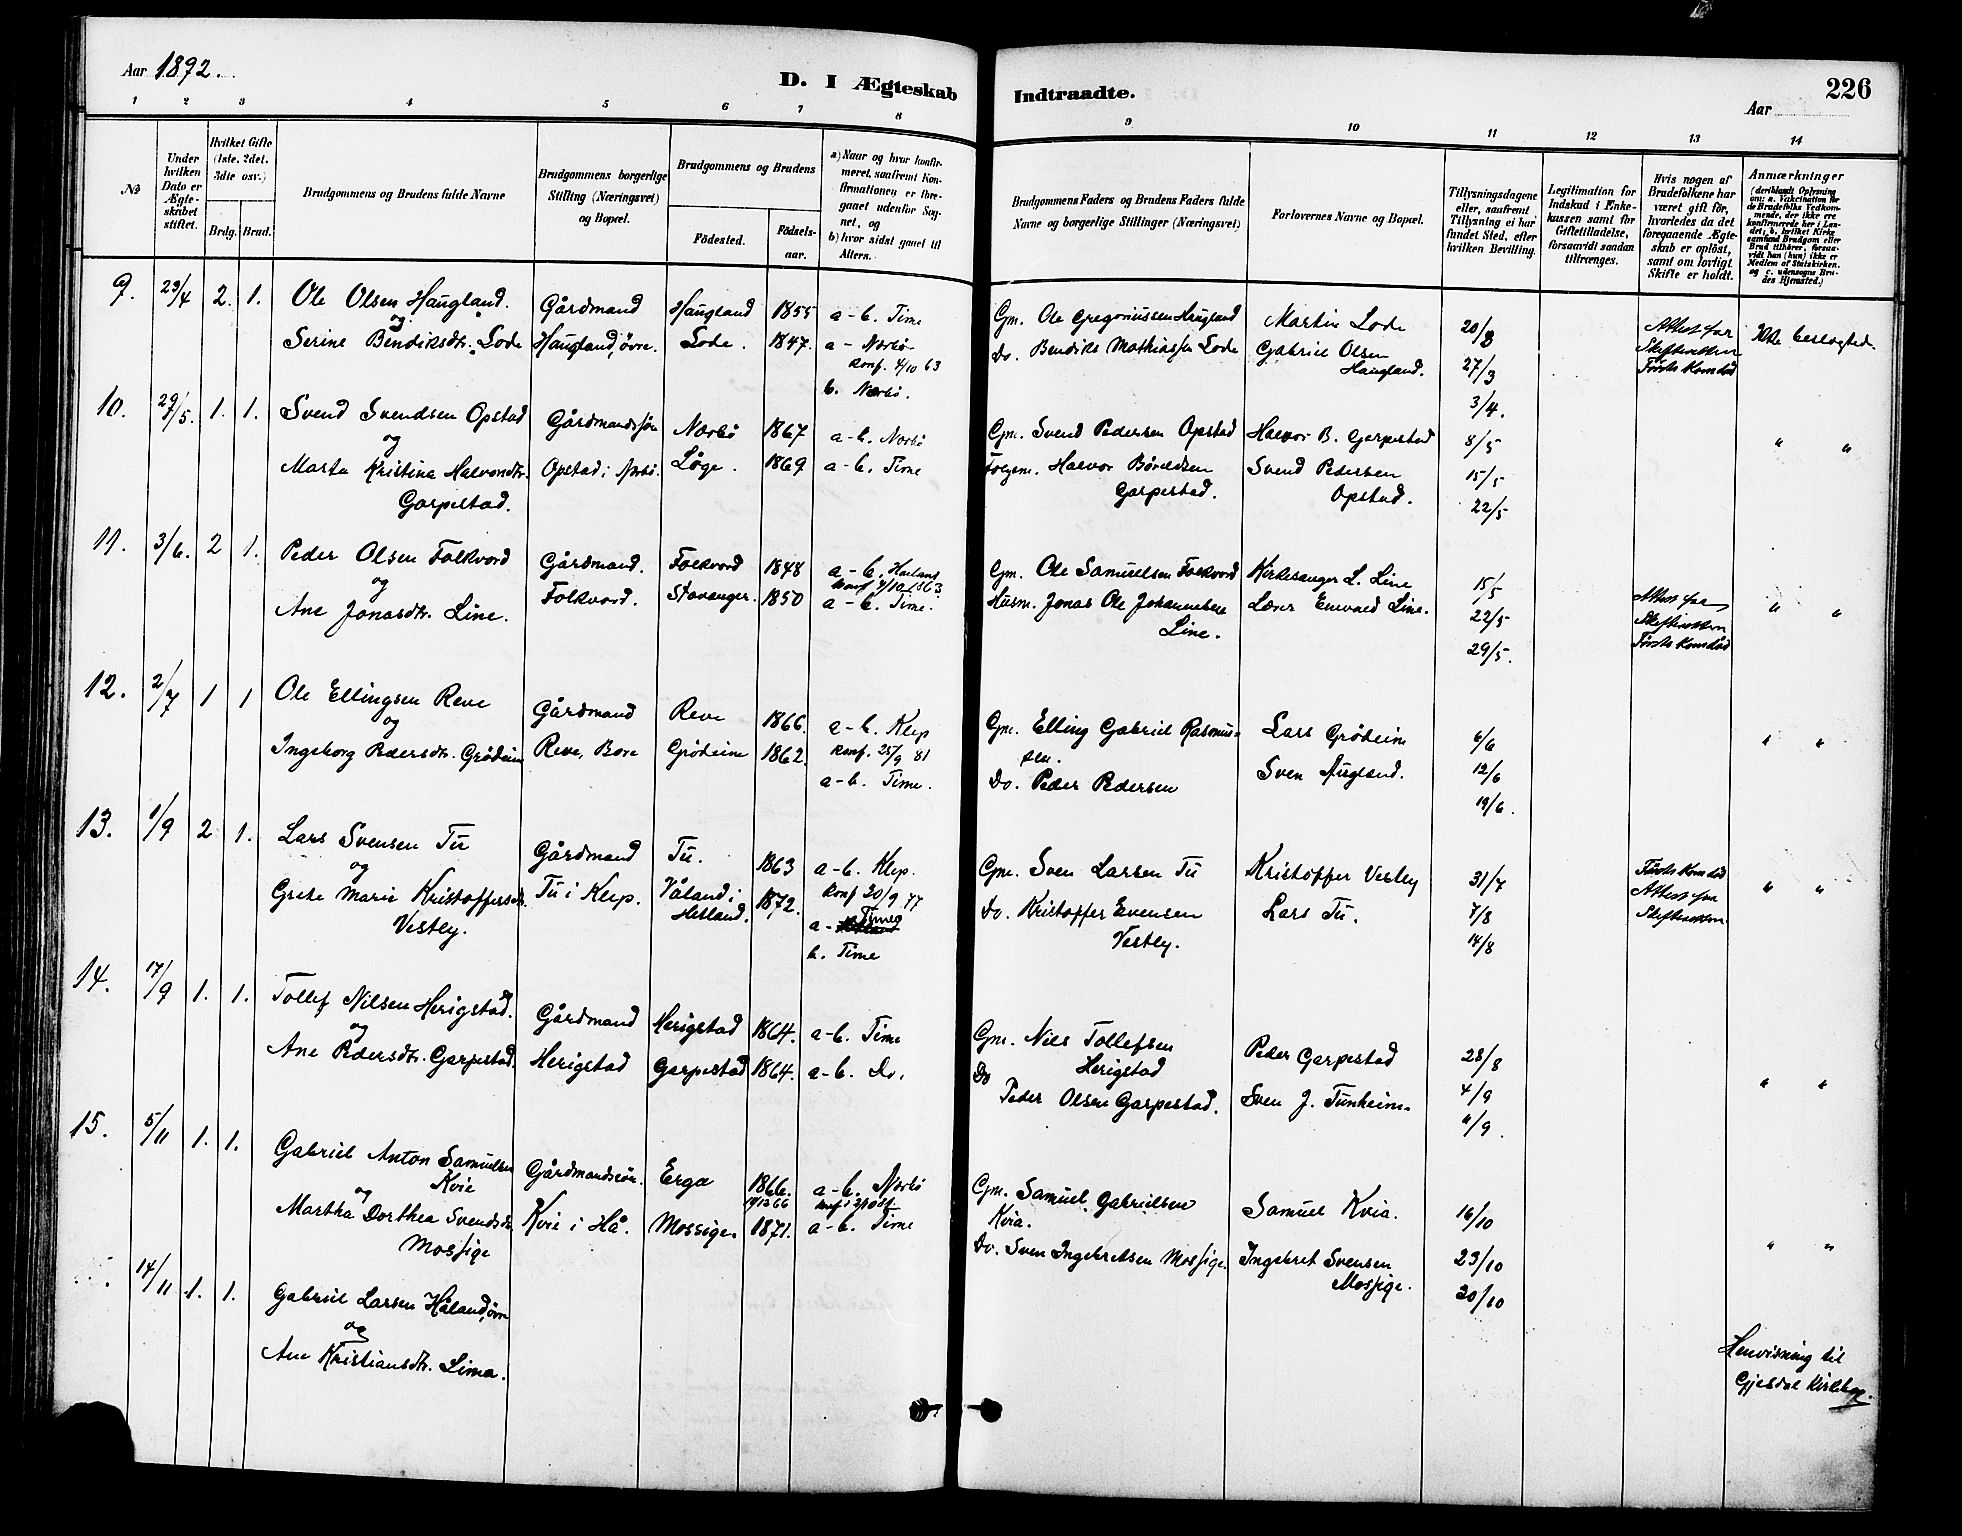 Aar 1892.
D. I Ægteskab Indtraadte.
226
Aar
1 2 3 4 5 6 7 8 9 10 11 12 13 14
No
Under hvilken Dato er Ægteskabet stiftet.
Hvilket Gifte (1ste, 2det, 3die osv.)
Brdg. Brud.
Brudgommens og Brudens fulde Navne
Brudgommens borgerlige Stilling (Næringsvei) og Bopæl.
Brudgommens og Brudens
Fødested.
Fødselsaar.
a) Naar og hvor konfirmeret, saafremt Konfirmationen er foregaaet udenfor Sognet, og
b) hvor sidst gaaet til Alters.
Brudgommens Faders og Brudens Faders fulde Navne og borgerlige Stillinger (Næringsvei)
Forlovernes Navne og Bopæl.
Tillysningsdagene eller, saafremt Tillysning ei har fundet Sted, efter hvilken Bevilling.
Legitimation for Indskud i Enkekassen samt for Giftetilladelse, forsaavidt saadan tiltrænges.
Hvis nogen af Brudefolkene har været gift før, hvorledes da det foregaaende Ægteskab er opløst, samt om lovligt Skifte er holdt.
Anmærkninger (deriblandt Oplysning om: a. Vakcination for de Brudefolks Vedkommende, der ikke ere konfirmerede her i Landet; b. hvilket Kirkesamfund Brudgom eller Brud tilhører, forsaavidt han (hun) ikke er Medlem af Statskirken, og c. udensogns Brudes Hjemsted.)
9. 23/4 2. 1.
Ole Olsen Haugland.
og
Serine Bendiksdtr. Lode
Gårdmand
Haugland, øvre.
Haugland 1855
Lode. 1847.
a-b. Time
a- Nærbø
Konf. 4/10 63
b. Nærbø.
Gm. Ole Gregoriussen Haugland
Do. Bendiks Mathiassen Lode
Martin Lode
Gabriel Olsen
Haugland.
20/3
27/3
3/4.
Attest fra
Skifteretten
Første Kone død
Ikke beslægted.
10. 29/5. 1. 1.
Svend Svendsen Opstad
og
Marta Kristina Halvorsdtr.
Garpestad.
Gårdmandssøn
Opstad i Nærbø.
Nærbø 1867
Løge. 1869
a-b. Nærbø
a-b. Time
Gm. Svend Pedersen Opstad
Halvor
Garpestad.
Halvor B. Garpestad
Svend Pedersen
Opstad.
8/5
15/5
22/5
" "
11. 3/6. 2 1.
Peder Olsen Folkvord
og
Ane Jonasdtr. Line.
Gårdmand.
Folkvord.
Folkvord 1848
Stavanger. 1850
a-b.
Konf 4/10 1863
a-b. Time.
Gm. Ole Samuelsen Folkvord
Husm. Jonas Ole Johannesen
Line.
Kirkesanger L. Line
Lærer Line.
15/5
22/5
29/5.
Attest fra
Skifteretten
Første Kone død
" "
12. 2/7 1 1
Ole Ellingsen Reve
og
Ingeborg Pedersdtr. Grødeim
Gårdmand
Reve, Bore
Reve 1866.
Grødeim 1862.
a-b. Klep
Konf. 25/9 81
a-b. Time.
Gm. Elling Gabriel Rasmus-
sen.
Do. Peder Pedersen
Lars Grødeim
Sven Augland.
6/6
12/6
19/6.
" "
13. 1/9 2 1.
Lars Svensen Tu
og
Grete Marie Kristoffersdtr.
Vestly.
Gårdmand
Tu i Klep.
Tu. 1863
Våland i
Hetland. 1872.
a-b. Klep.
Konf 30/9 77
a- Time
b. Time
Gm. Sven Larsen Tu
Do. Kristoffer Evensen
Vestly.
Kristoffer Vestly
Lars Tu.
31/7
7/8
14/8
Første Kone død
Attest fra
Skifteretten.
" "
14. 17/9 1. 1.
Tollef Nilsen Herigstad.
og
Ane Pedersdtr. Garpestad.
Gårdmand
Herigstad
Herigstad 1864.
Garpestad 1864.
a-b. Time
a-b. Do.
Gm. Nils Tollefsen
Herigstad
Do Peder Olsen Garpestad.
Peder Garpestad
Sven J. Tunheim.
28/8
4/9
11/9.
" "
15. 5/11 1. 1.
Gabriel Anton Samuelsen
Kvie
og
Martha Dorthea Svendsdtr.
Mossige
Gårdmandssøn.
Kvie i Hå.
Erga 1866.
Mossige 1871.
a-b. Nærbø
a-b. Time
Gm. Samuel Gabrielsen
Kvia.
Do. Sven Ingebretsen Mossige.
Samuel Kvia.
Ingebret Svensen
Mossige.
16/10
23/10
30/10
" "
14/11 1. 1.
Gabriel Larsen Håland, øvre
og
Ane Kristiansdtr. Lima.
Henvisning til
Gjesdal Kirkebog.